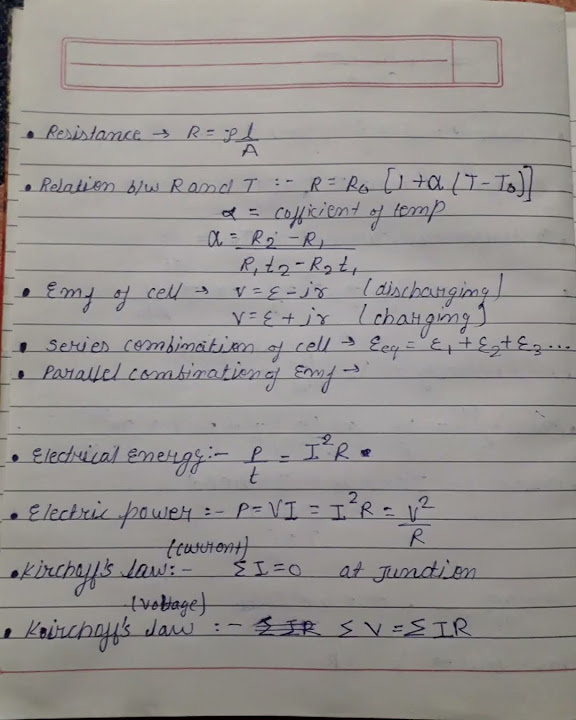 • Resistance → R = ρ l/A
• Relation b/w R and T :- R = R₀ [1 + α (T - T₀)]
α = cofficient of temp
α = R₂ - R₁ / R₁t₂ - R₂t₁
• Emf of cell → V = ε - ir (discharging)
V = ε + ir (charging)
• Series combination of cell → εeq = ε₁ + ε₂ + ε₃ ...
• Parallel combination of Emf →
• Electrical Energy :- P/t = I²R •
• Electric power :- P = VI = I²R = V²/R
(current)
• Kirchoff's Law :- ΣI = 0 at junction
(voltage)
• Kirchoff's Law :- ΣIR ΣV = ΣIR